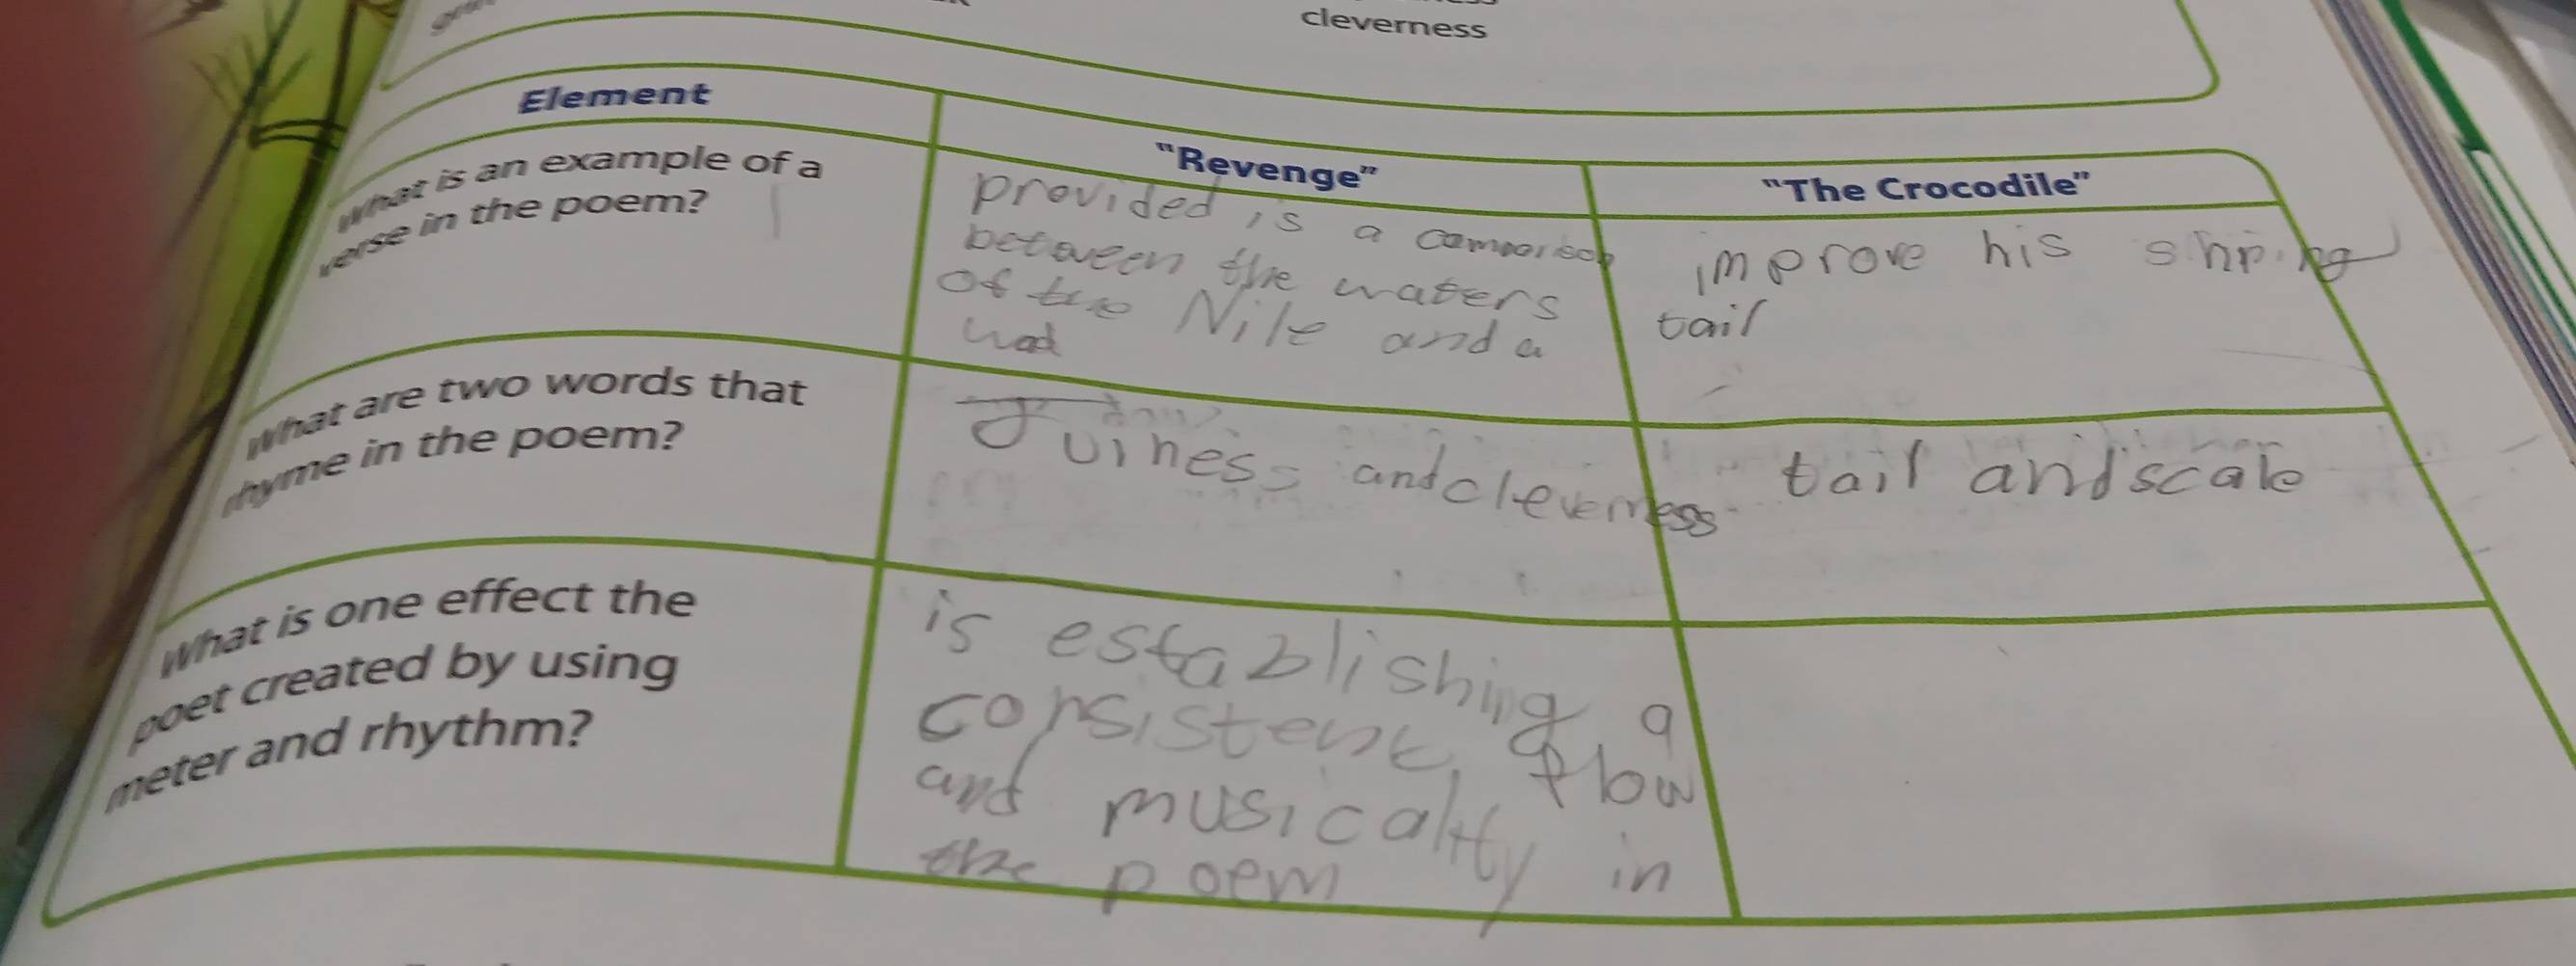 cleverness
Element
"Revenge"
"The Crocodile"
What is an example of a
verse in the poem?
provided is a comparison
between the waters
of the Nile and a
improve his shping
tail
What are two words that
rhyme in the poem?
and cleverness
tail and scale
What is one effect the
poet created by using
meter and rhythm?
is establishing a
consistent flow
and musicality in
the poem